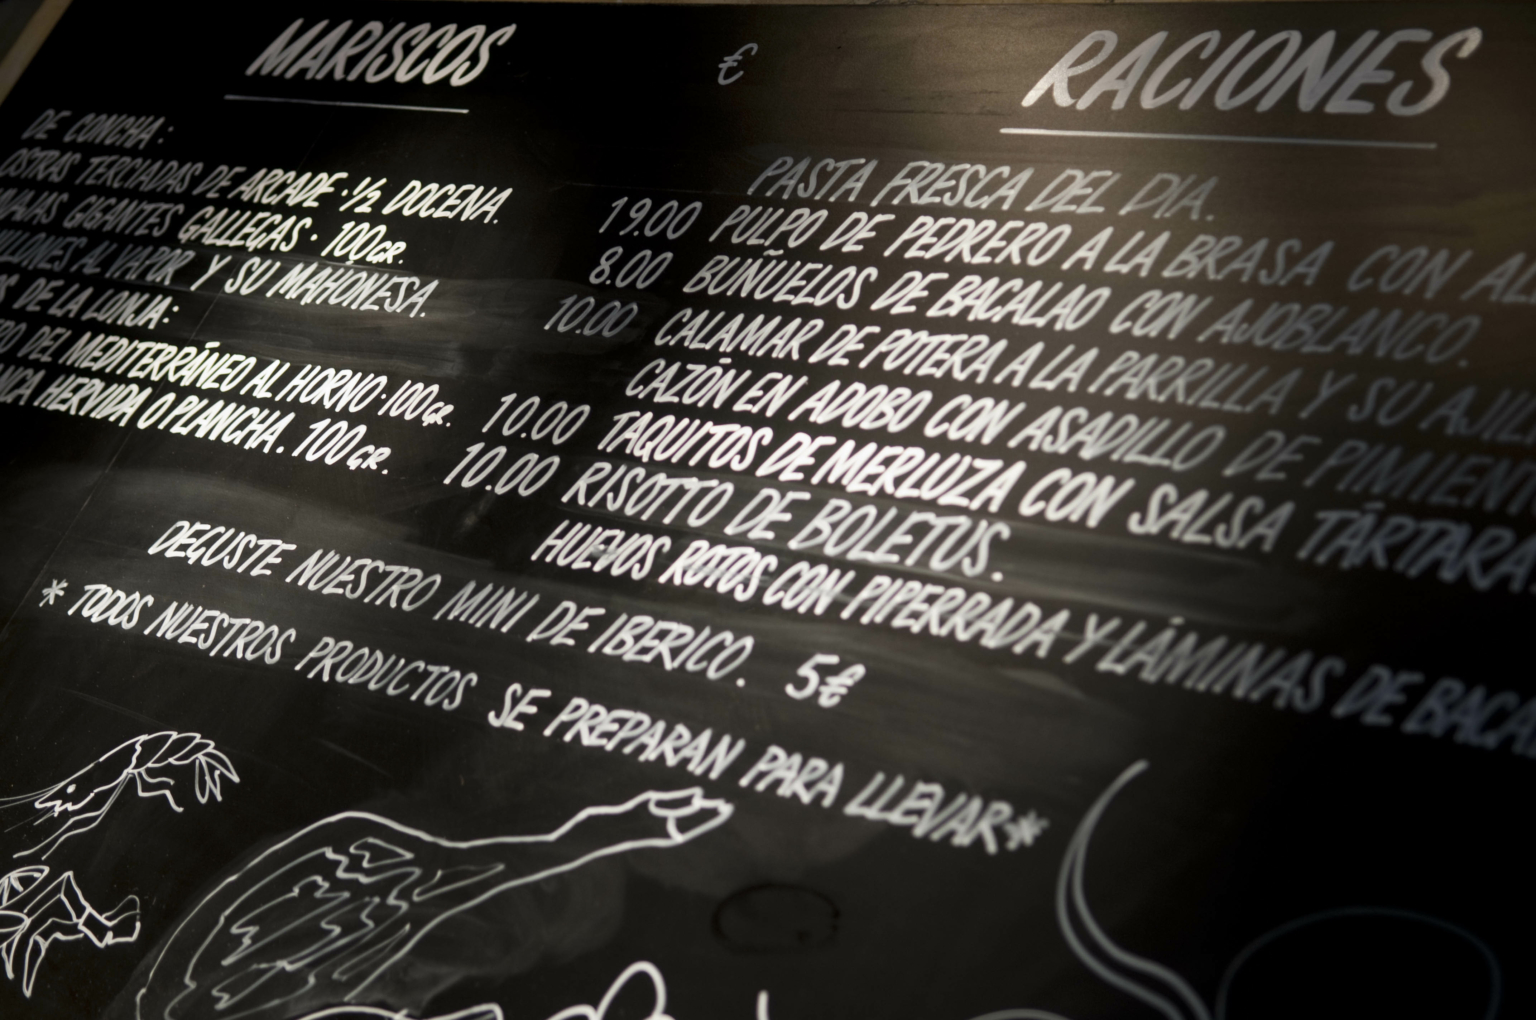 MARISCOS
€
DE CONCHA:
OSTRAS TERCIADAS DE ARCADE · 1/2 DOCENA. 19.00
GIGANTES GALLEGAS · 100GR. 8.00
AL VAPOR Y SU MAHONESA. 10.00
DE LA LONJA:
DEL MEDITERRÁNEO AL HORNO · 100gr. 10.00
HERVIDA O PLANCHA. 100GR. 10.00
DEGUSTE NUESTRO MINI DE IBERICO. 5€
* TODOS NUESTROS PRODUCTOS SE PREPARAN PARA LLEVAR *
RACIONES
PASTA FRESCA DEL DIA.
PULPO DE PEDRERO A LA BRASA CON
BUÑUELOS DE BACALAO CON AJOBLANCO.
CALAMAR DE POTERA A LA PARRILLA Y SU
CAZÓN EN ADOBO CON ASADILLO DE
TAQUITOS DE MERLUZA CON SALSA TÁRTARA
RISOTTO DE BOLETUS.
HUEVOS ROTOS CON PIPERRADA Y LÁMINAS DE